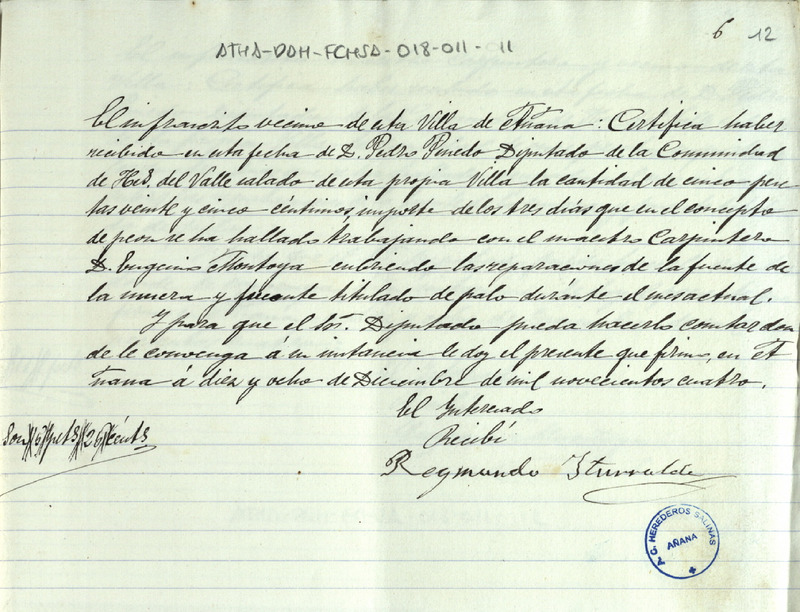 6 12
ATHA-DAH-FCHSA-018-011-11
El infrascrito vecino de esta Villa de Añana: Certifica haber
recibido en esta fecha de D. Pedro Pinedo Diputado de la Comunidad
de Hes. del Valle salado de esta propia Villa la cantidad de cinco pese
tas veinte y cinco céntimos, importe de los tres días que en el concepto
de peon se ha hallado trabajando con el maestro Carpintero
D. Eugenio Montoya cubriendo las reparaciones de la fuente de
la muera y puente titulado de palo durante el mes actual.
Y para que el Sor. Diputado pueda hacerlo constar don
de le convenga á su instancia le doy el presente que firmo, en A
ñana á diez y ocho de Diciembre de mil novecientos cuatro.
El Interesado
Recibí
Son
Reymundo Iturralde
A. C. HEREDEROS SALINAS
AÑANA